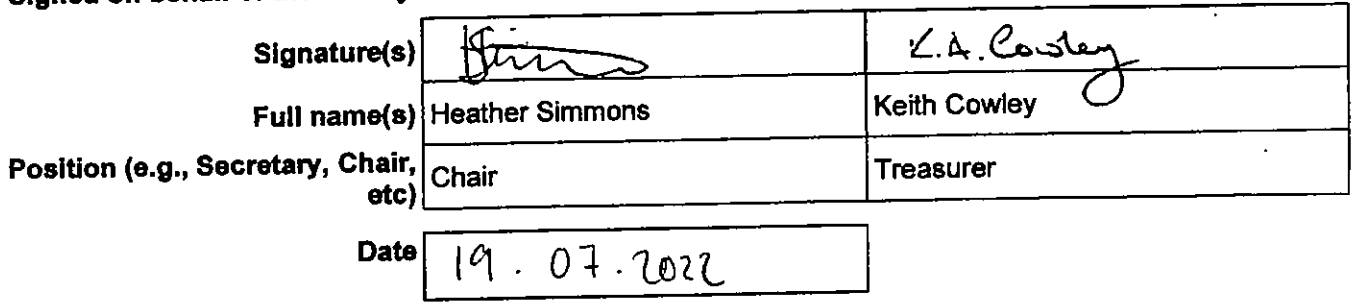 Signed on behalf
Signature(s) K.A. Cowley
Full name(s) Heather Simmons Keith Cowley
Position (e.g., Secretary, Chair, etc) Chair Treasurer
Date 19.07.2022